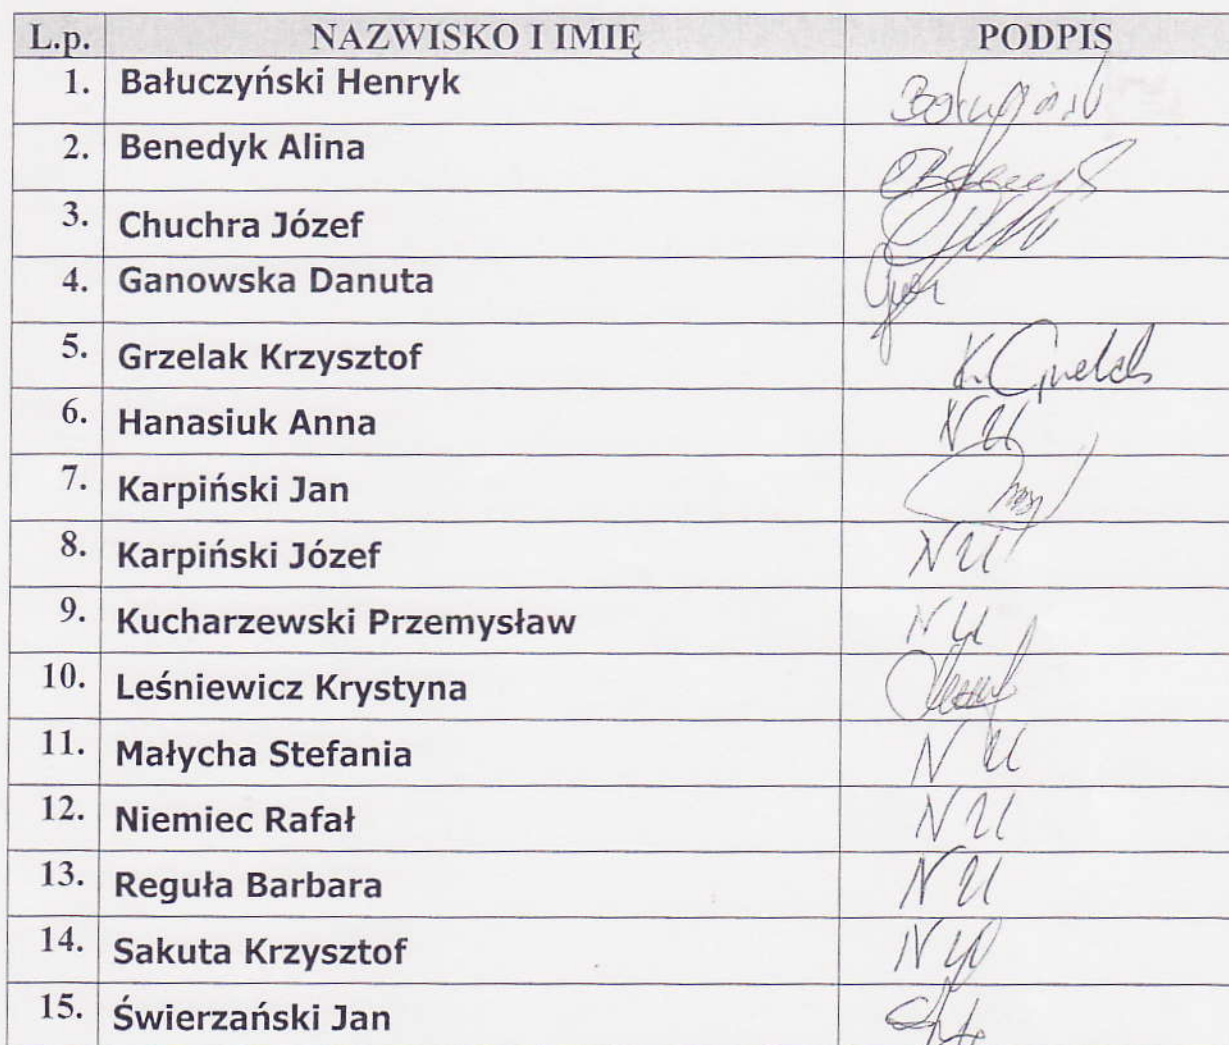 L.p. NAZWISKO I IMIĘ PODPIS
1. Bałuczyński Henryk
2. Benedyk Alina
3. Chuchra Józef
4. Ganowska Danuta
5. Grzelak Krzysztof K. Grzelak
6. Hanasiuk Anna NU
7. Karpiński Jan
8. Karpiński Józef NU
9. Kucharzewski Przemysław NU
10. Leśniewicz Krystyna
11. Małycha Stefania NU
12. Niemiec Rafał NU
13. Reguła Barbara NU
14. Sakuta Krzysztof NU
15. Świerzański Jan